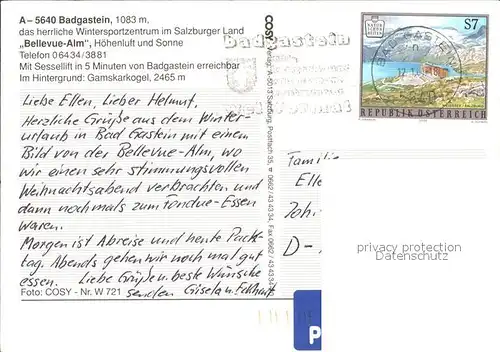 A-5640 Badgastein, 1083 m,
das herrliche Wintersportzentrum im Salzburger Land
„Bellevue-Alm", Höhenluft und Sonne
Telefon 06434/3881
Mit Sessellift in 5 Minuten von Badgastein erreichbar
Im Hintergrund: Gamskarkogel, 2465 m
Liebe Ellen, Lieber Helmut,
Herzliche Grüße aus dem Winter-
urlaub in Bad Gastein mit einem
Bild von der Bellevue-Alm, wo
wir einen sehr stimmungsvollen
Weihnachtsabend verbrachten und
dann nochmals zum Fondue-Essen
waren.
Morgen ist Abreise und heute Pack-
tag. Abends gehen wir noch mal gut
essen. Liebe Grüße u. beste Wünsche
senden Gisela u. Eckhart
Foto: COSY - Nr. W 721
COSY Verlag, A-5013 Salzburg, Postfach 35, 0662/434334, Fax 0662/434334
badgastein
S7
BADGASTEIN
REPUBLIK ÖSTERREICH
Familie
Elle
Joh
D-
privacy protection
Datenschutz
P